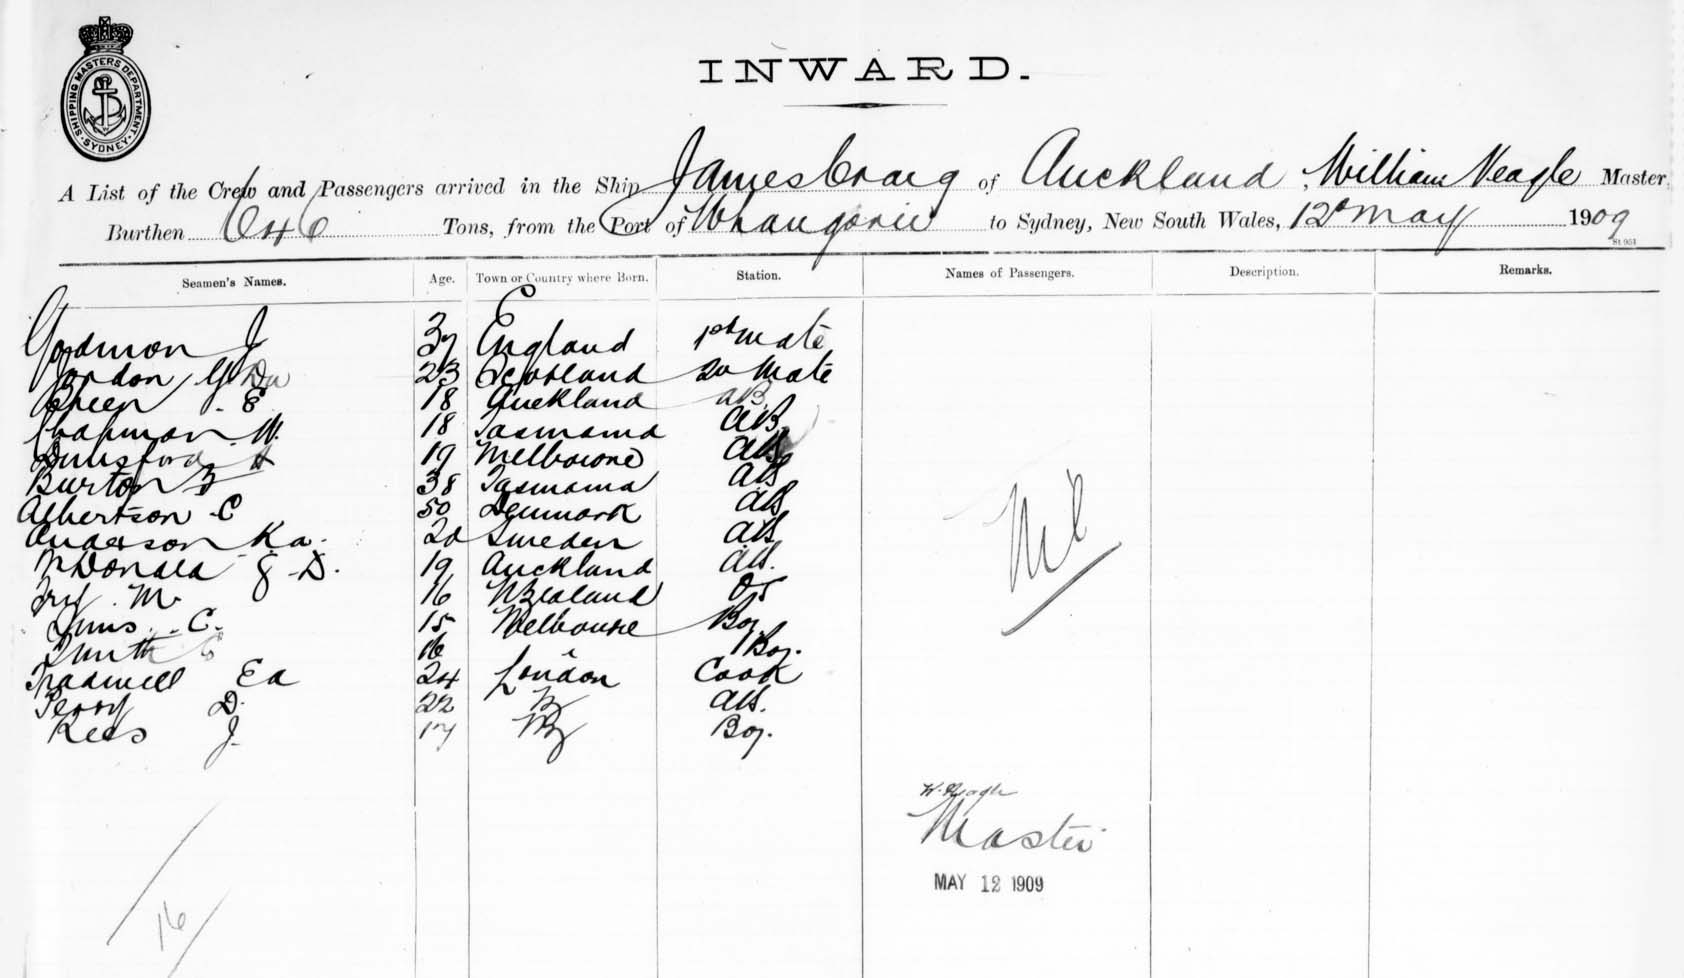 SHIPPING MASTERS DEPARTMENT. SYDNEY
INWARD.
A List of the Crew and Passengers arrived in the Ship James Craig of Auckland, William Neagle Master,
Burthen 646 Tons, from the Port of Whangarie to Sydney, New South Wales, 12th May 1909
St 951
Seamen's Names. Age. Town or Country where Born. Station. Names of Passengers. Description. Remarks.
J 37 England 1st Mate
Gordon 23 Scotland 2d Mate
Green E 18 Auckland AB
Chapman W. 18 Tasmania AB
Dunsford 19 Melbourne AB
Burton F 38 Tasmania AB
Albertson C 50 Denmark AB
Anderson K a. 20 Sweden AB
McDonald G D. 19 Auckland AB.
M. 16 NZealand OS
C. 15 Melbourne Boy
Smith 16 Boy.
Tradwell Ed 24 London Cook
Perry D. 22 NZ AB.
Rees J. 17 NZ Boy.
Nil
W. Neagle
Master
MAY 12 1909
16